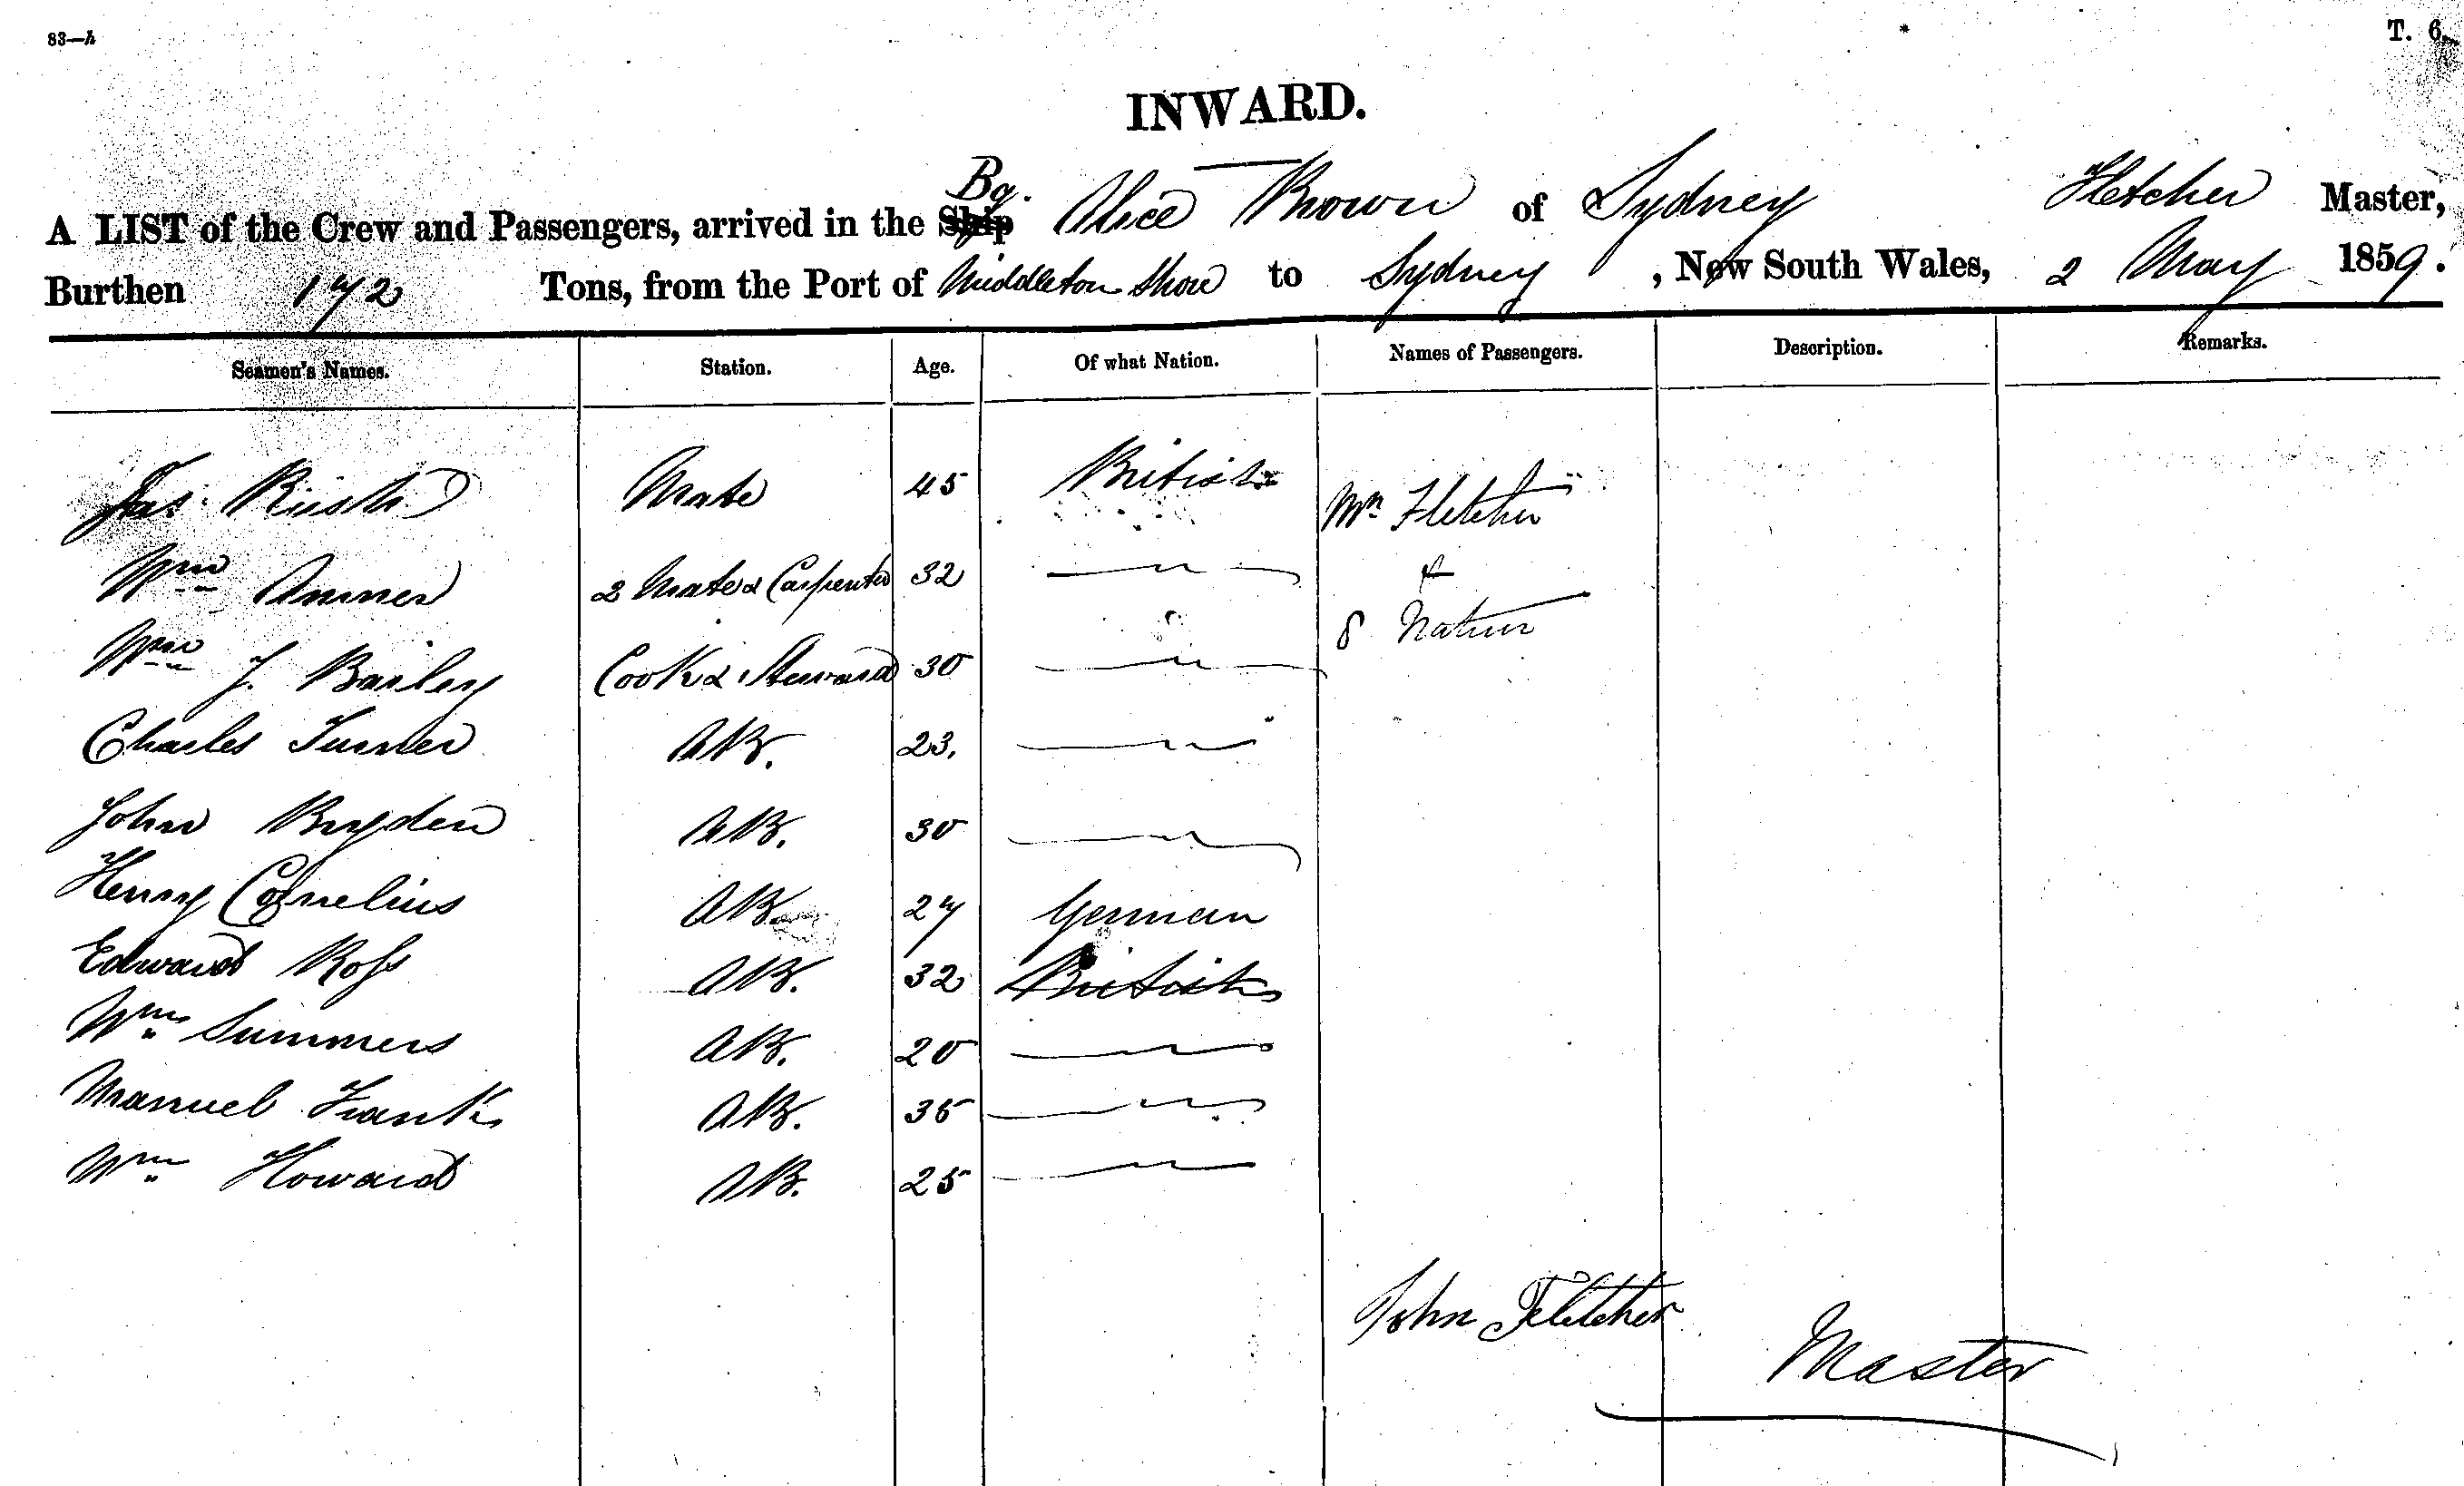 83—h
T. 6.
INWARD.
Bq.
A LIST of the Crew and Passengers, arrived in the Ship Alice Brown of Sydney Fletcher Master,
Burthen 172 Tons, from the Port of Middleton Shoal to Sydney, New South Wales, 2 May 1859.
Seamen's Names. Station. Age. Of what Nation. Names of Passengers. Description. Remarks.
Jas. Mate 45 British Mrs Fletcher
Wm 2 Mate & Carpenter 32 — " — &
Wm J. Bailey Cook & Steward 30 — " — 8 Natives
Charles Turner AB. 23. — " —
John Bryden AB. 30 — " —
Henry Cornelius AB. 27 German
Edward Ross AB. 32 British
Wm Summers AB. 20 — " —
Manuel Franks AB. 35 — " —
Wm Howard AB. 25 — " —
John Fletcher
Master